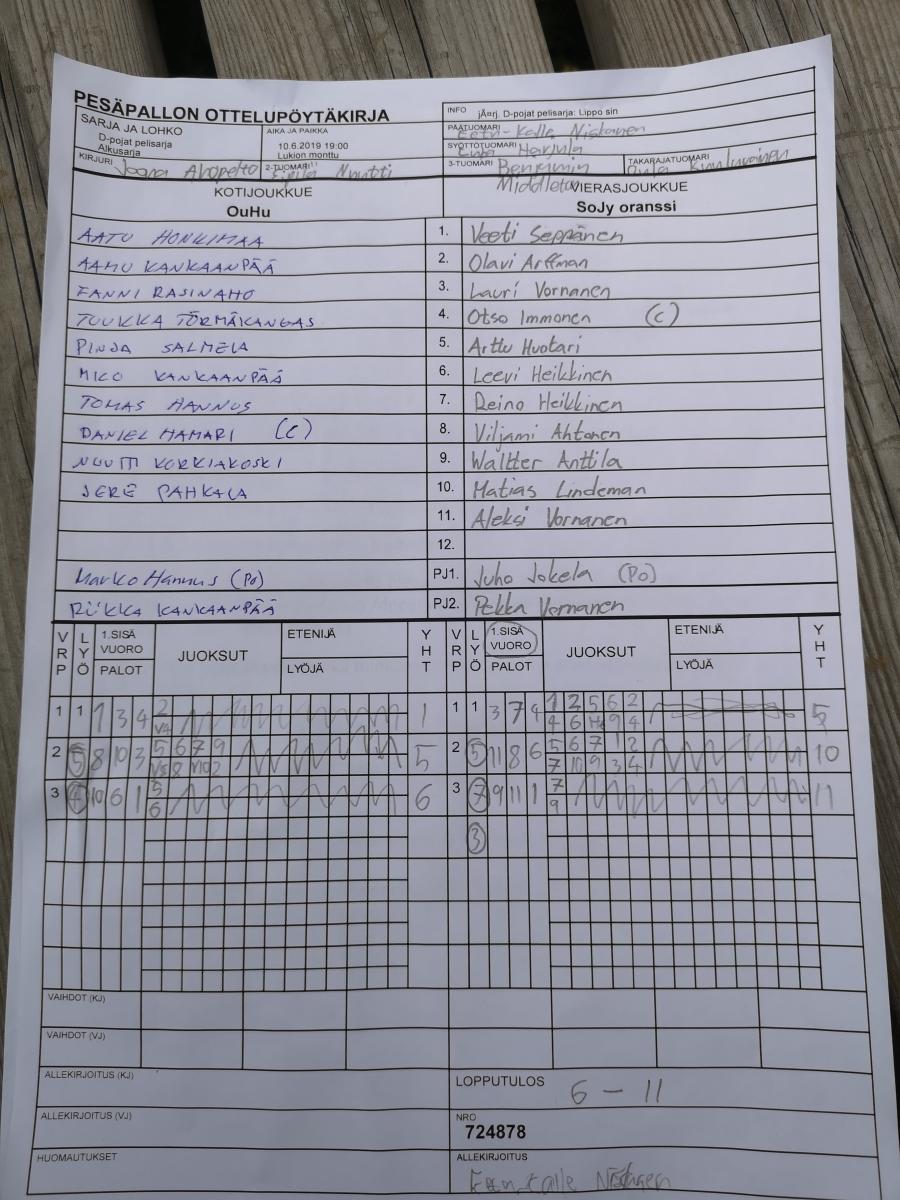 PESÄPALLON OTTELUPÖYTÄKIRJA
SARJA JA LOHKO
D-pojat pelisarja
Alkusarja
AIKA JA PAIKKA
10.6.2019 19:00
Lukion monttu
INFO jÄ¤rj. D-pojat pelisarja: Lippo sin
PÄÄTUOMARI Eetu-Kalle Niskanen
SYÖTTÖTUOMARI
KIRJURI Joona
2-TUOMARI Nuutti
3-TUOMARI Benjamin Middleton
TAKARAJATUOMARI
KOTIJOUKKUE
OuHu
VIERASJOUKKUE
SoJy oranssi
AATU HONKIMAA 1. Veeti Seppänen
AAMU KANKAANPÄÄ 2. Olavi Arffman
FANNI RASINAHO 3. Lauri Vornanen
TUUKKA TÖRMÄKANGAS 4. Otso Immonen (C)
PINJA SALMELA 5. Arttu Huotari
MICO KANKAANPÄÄ 6. Leevi Heikkinen
TOMAS HANNUS 7. Reino Heikkinen
DANIEL HAMARI (C) 8. Viljami Ahtonen
NUUTTI KORKIAKOSKI 9. Waltter Anttila
JERE PAHKALA 10. Matias Lindeman
11. Aleksi Vornanen
12.
Marko Hannus (Po) PJ1. Juho Jokela (Po)
RIIKKA KANKAANPÄÄ PJ2. Pekka Vornanen
VRP LYÖ 1.SISÄ VUORO PALOT JUOKSUT ETENIJÄ LYÖJÄ YHT VRP LYÖ 1.SISÄ VUORO PALOT JUOKSUT ETENIJÄ LYÖJÄ YHT
1 1 1 3 4 2 1 1 1 3 7 4 1 2 5 6 2 5
4 6 9 4
2 5 8 10 3 5 6 7 9 5 2 5 11 8 6 5 6 7 1 2 10
8 7 10 9 3 4
3 4 10 6 1 5 6 3 7 9 11 1 7 11
6 9
3
VAIHDOT (KJ)
VAIHDOT (VJ)
ALLEKIRJOITUS (KJ)
LOPPUTULOS 6 – 11
ALLEKIRJOITUS (VJ)
NRO
724878
HUOMAUTUKSET
ALLEKIRJOITUS